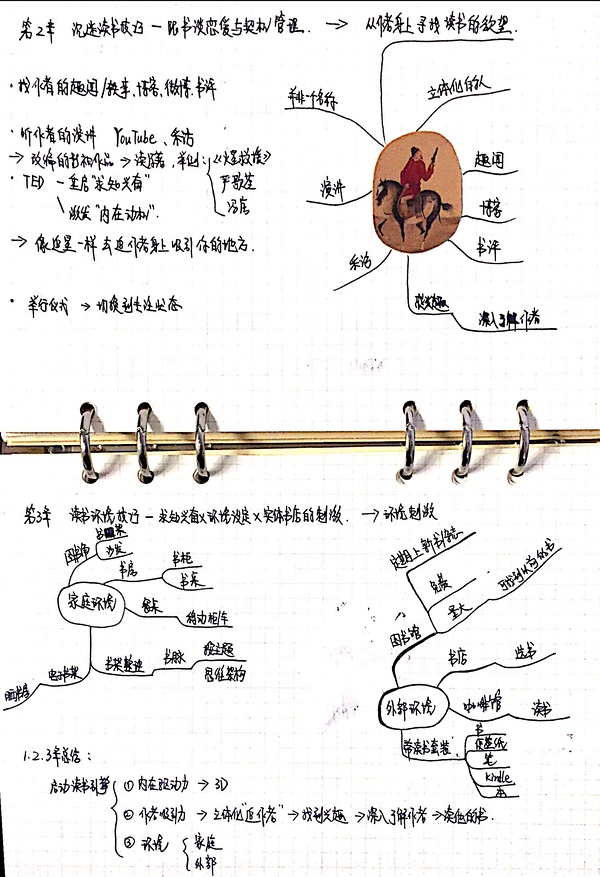 第2章 沉迷读书技巧－跟书谈恋爱与契机管理. → 从作者身上寻找读书的欲望.
· 找作者的趣闻/轶事、博客、微博、书评
· 听作者的演讲 YouTube、采访
→ 改编的影视作品 → 读原著, 举例:《火星救援》
严歌苓
冯唐
· TED － 重启"求知兴奋"
激发"内在动机".
→ 像追星一样去追作者身上吸引你的地方.
· 举行仪式 → 切换到专注状态
并非一个名称
立体化的人
趣闻
博客
书评
演讲
采访
感兴趣
深入了解作者
第3章 读书环境技巧－求知兴奋×环境设定×实体书店的刺激. → 环境刺激
家庭环境
沙发
书房
书柜
书桌
餐桌
移动柜车
书架整理
书脉
按主题
思维架构
电子书架
外部环境
图书馆
定期上新书杂志
免费
量大
书店
选书
咖啡馆
读书
带读书套装
书
便签纸
笔
kindle
本
1.2.3章总结:
启动读书引擎
① 内在驱动力 → 3D
② 作者吸引力 → 立体化"追作者" → 找到兴趣 → 深入了解作者 → 读他的书.
③ 环境
家庭
外部